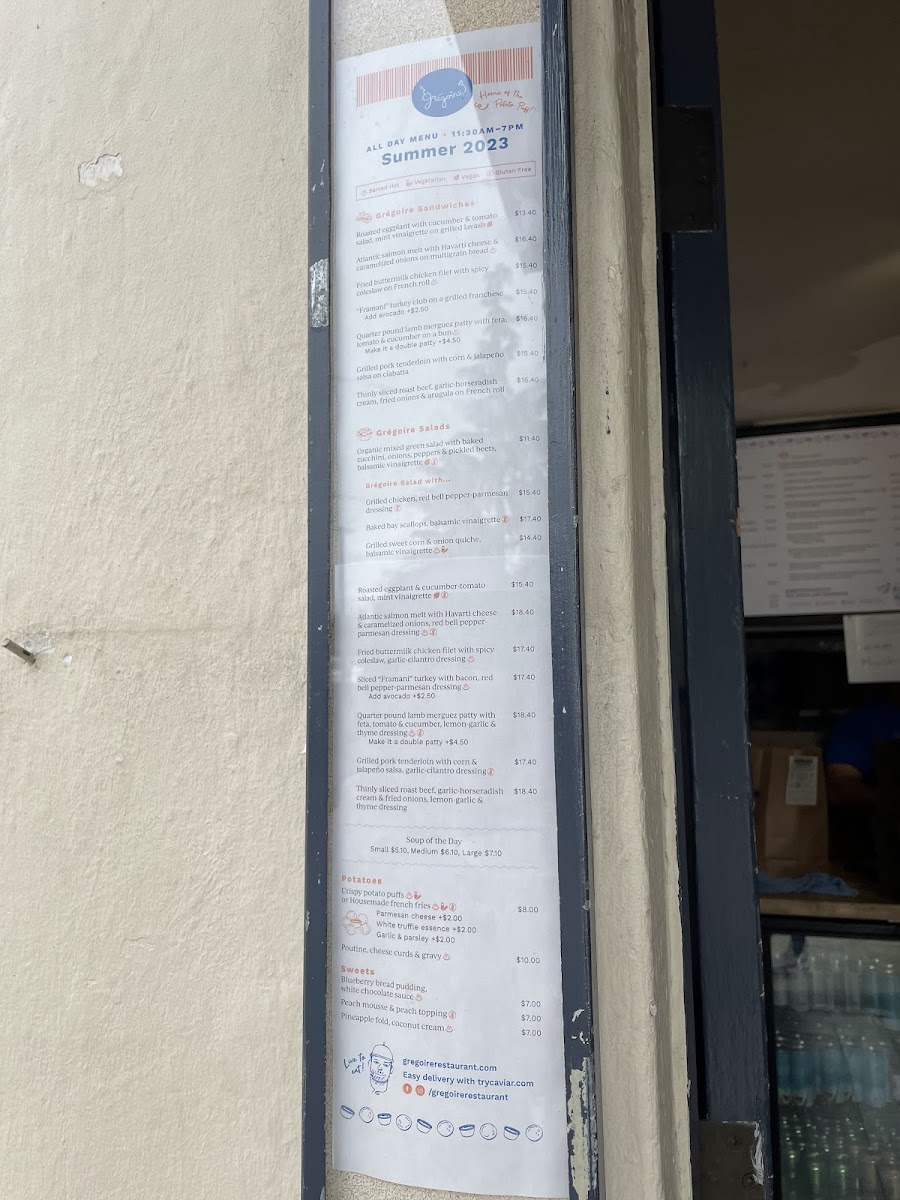 Grégoire
Home of the
Potato Puff
ALL DAY MENU · 11:30AM–7PM
Summer 2023
Served Hot Vegetarian Vegan Gluten Free
Grégoire Sandwiches
Roasted eggplant with cucumber & tomato $13.40
salad, mint vinaigrette on grilled lavash
Atlantic salmon melt with Havarti cheese & $16.40
caramelized onions on multigrain bread
Fried buttermilk chicken filet with spicy $15.40
coleslaw on French roll
"Framani" turkey club on a grilled franchese $15.40
Add avocado +$2.50
Quarter pound lamb merguez patty with feta, $16.40
tomato & cucumber on a bun
Make it a double patty +$4.50
Grilled pork tenderloin with corn & jalapeño $15.40
salsa on ciabatta
Thinly sliced roast beef, garlic-horseradish $16.40
cream, fried onions & arugula on French roll
Grégoire Salads
Organic mixed green salad with baked $11.40
zucchini, onions, peppers & pickled beets,
balsamic vinaigrette
Grégoire Salad with...
Grilled chicken, red bell pepper-parmesan $15.40
dressing
Baked bay scallops, balsamic vinaigrette $17.40
Grilled sweet corn & onion quiche, $14.40
balsamic vinaigrette
Roasted eggplant & cucumber-tomato $15.40
salad, mint vinaigrette
Atlantic salmon melt with Havarti cheese $18.40
& caramelized onions, red bell pepper-
parmesan dressing
Fried buttermilk chicken filet with spicy $17.40
coleslaw, garlic-cilantro dressing
Sliced "Framani" turkey with bacon, red $17.40
bell pepper-parmesan dressing
Add avocado +$2.50
Quarter pound lamb merguez patty with $18.40
feta, tomato & cucumber, lemon-garlic &
thyme dressing
Make it a double patty +$4.50
Grilled pork tenderloin with corn & $17.40
jalapeño salsa, garlic-cilantro dressing
Thinly sliced roast beef, garlic-horseradish $18.40
cream & fried onions, lemon-garlic &
thyme dressing
Soup of the Day
Small $5.10, Medium $6.10, Large $7.10
Potatoes
Crispy potato puffs
or Housemade french fries $8.00
Parmesan cheese +$2.00
White truffle essence +$2.00
Garlic & parsley +$2.00
Poutine, cheese curds & gravy $10.00
Sweets
Blueberry bread pudding,
white chocolate sauce $7.00
Peach mousse & peach topping $7.00
Pineapple fold, coconut cream $7.00
Live to
eat!
gregoirerestaurant.com
Easy delivery with trycaviar.com
/gregoirerestaurant